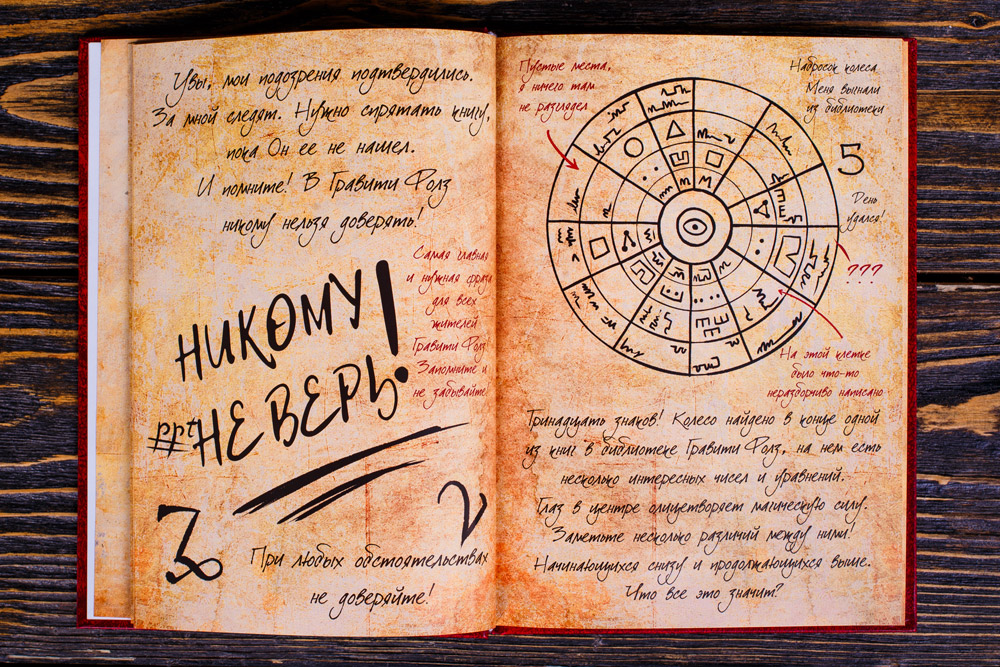 Увы, мои подозрения подтвердились.
За мной следят. Нужно спрятать книгу,
пока Он ее не нашел.
И помните! В Гравити Фолз
никому нельзя доверять!
Самая главная
и нужная фраза
для всех
жителей
Гравити Фолз
Запомните и
не забывайте
НИКОМУ
НЕ ВЕРЬ!
ppt
3
2
При любых обстоятельствах
не доверяйте!
Пустые места,
я ничего там
не разглядел
Набросок колеса
Меня выгнали
из библиотеки
5
День
удался!
???
На этой клетке
было что-то
неразборчиво написано
Тринадцать знаков! Колесо найдено в конце одной
из книг в библиотеке Гравити Фолз, на нем есть
несколько интересных чисел и уравнений.
Глаз в центре олицетворяет магическую силу.
Заметьте несколько различий между ними!
Начинающихся снизу и продолжающихся выше.
Что все это значит?